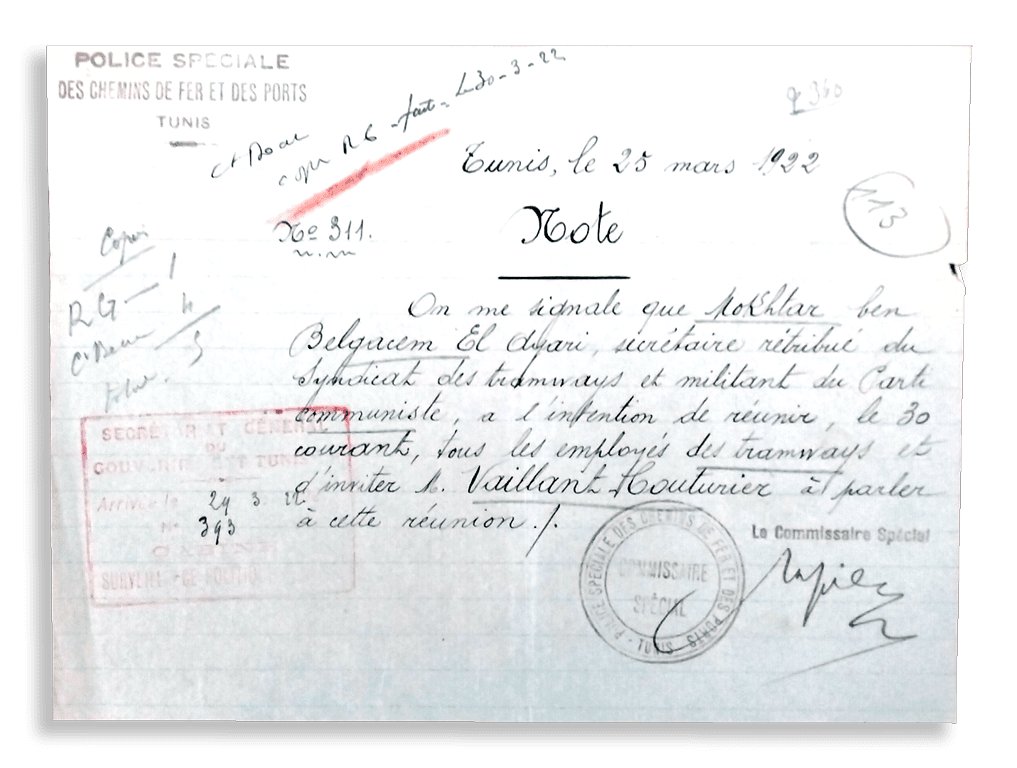 POLICE SPÉCIALE
DES CHEMINS DE FER ET DES PORTS
TUNIS
copie RG - fait - le 30-3-22
360
Tunis, le 25 mars 1922
113
No 311.
Note
Copies
RG 1
On me signale que Mokhtar ben
Belgacem El Ayari, secrétaire rétribué du
Syndicat des tramways et militant du Parti
communiste, a l'intention de réunir, le 30
courant, tous les employés des tramways et
d'inviter M. Vaillant Couturier à parler
à cette réunion ./.
SECRÉTARIAT GÉNÉRAL
DU
GOUVERNEMENT TUNISIEN
Arrivée le 29 3 22
No 393
CABINET
SURVEILLANCE POLITIQUE
Le Commissaire Spécial
POLICE SPÉCIALE DES CHEMINS DE FER ET DES PORTS
COMMISSAIRE
SPÉCIAL
- TUNIS -